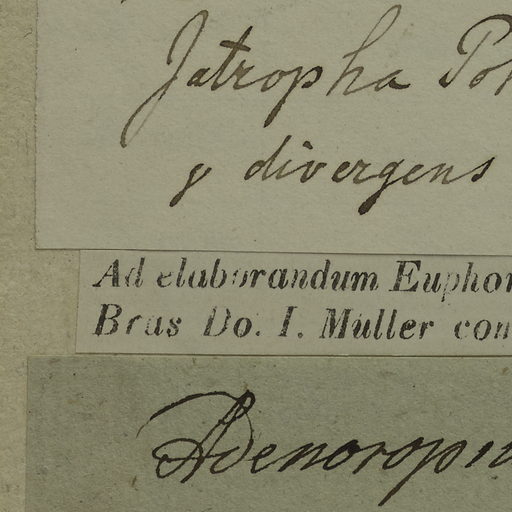 Jatropha Poh
γ divergens
Ad elaborandum Euphor
Bras Do. I. Müller con
Adenoropi